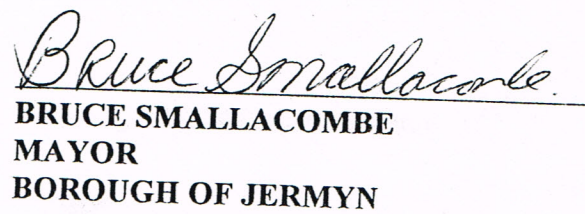 Bruce Smallacombe
BRUCE SMALLACOMBE
MAYOR
BOROUGH OF JERMYN